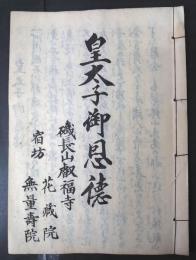 皇太子御恩德
磯長山叡福寺
宿坊
花藏院
無量壽院